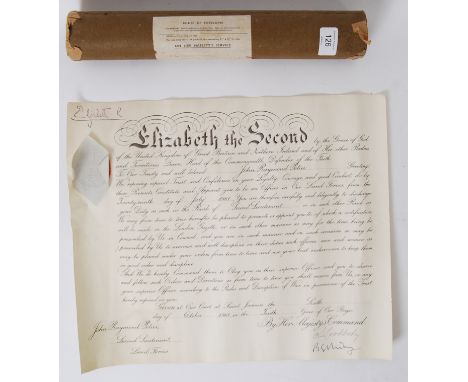 126
ON HER MAJESTY'S SERVICE
Elizabeth R
Elizabeth the Second by the Grace of God
of the United Kingdom of Great Britain and Northern Ireland and of Her other Realms
and Territories Queen, Head of the Commonwealth, Defender of the Faith.
To Our Trusty and well beloved John Raymond Greeting:
We reposing especial Trust and Confidence in your Loyalty, Courage, and good Conduct, do by
these Presents Constitute and Appoint you to be an Officer in Our Land Forces from the
day of July 1961. You are therefore carefully and diligently to discharge
your Duty as such in the Rank of Second Lieutenant or in such other Rank as
We may from time to time hereafter be pleased to promote or appoint you to, of which a notification
will be made in the London Gazette, or in such other manner as may for the time being be
prescribed by Us in Council, and you are in such manner and on such occasions as may be
prescribed by Us to exercise and well discipline in their duties such officers, men and women as
may be placed under your orders from time to time and use your best endeavours to keep them
in good order and discipline.
And We do hereby Command them to Obey you as their superior Officer and you to observe
and follow such Orders and Directions as from time to time you shall receive from Us, or any
your superior Officer, according to the Rules and Discipline of War, in pursuance of the Trust
hereby reposed in you.
Given at Our Court, at Saint James's the Sixth
day of October 1961 in the Tenth Year of Our Reign
By Her Majesty's Command.
John Raymond
Second Lieutenant
Land Forces